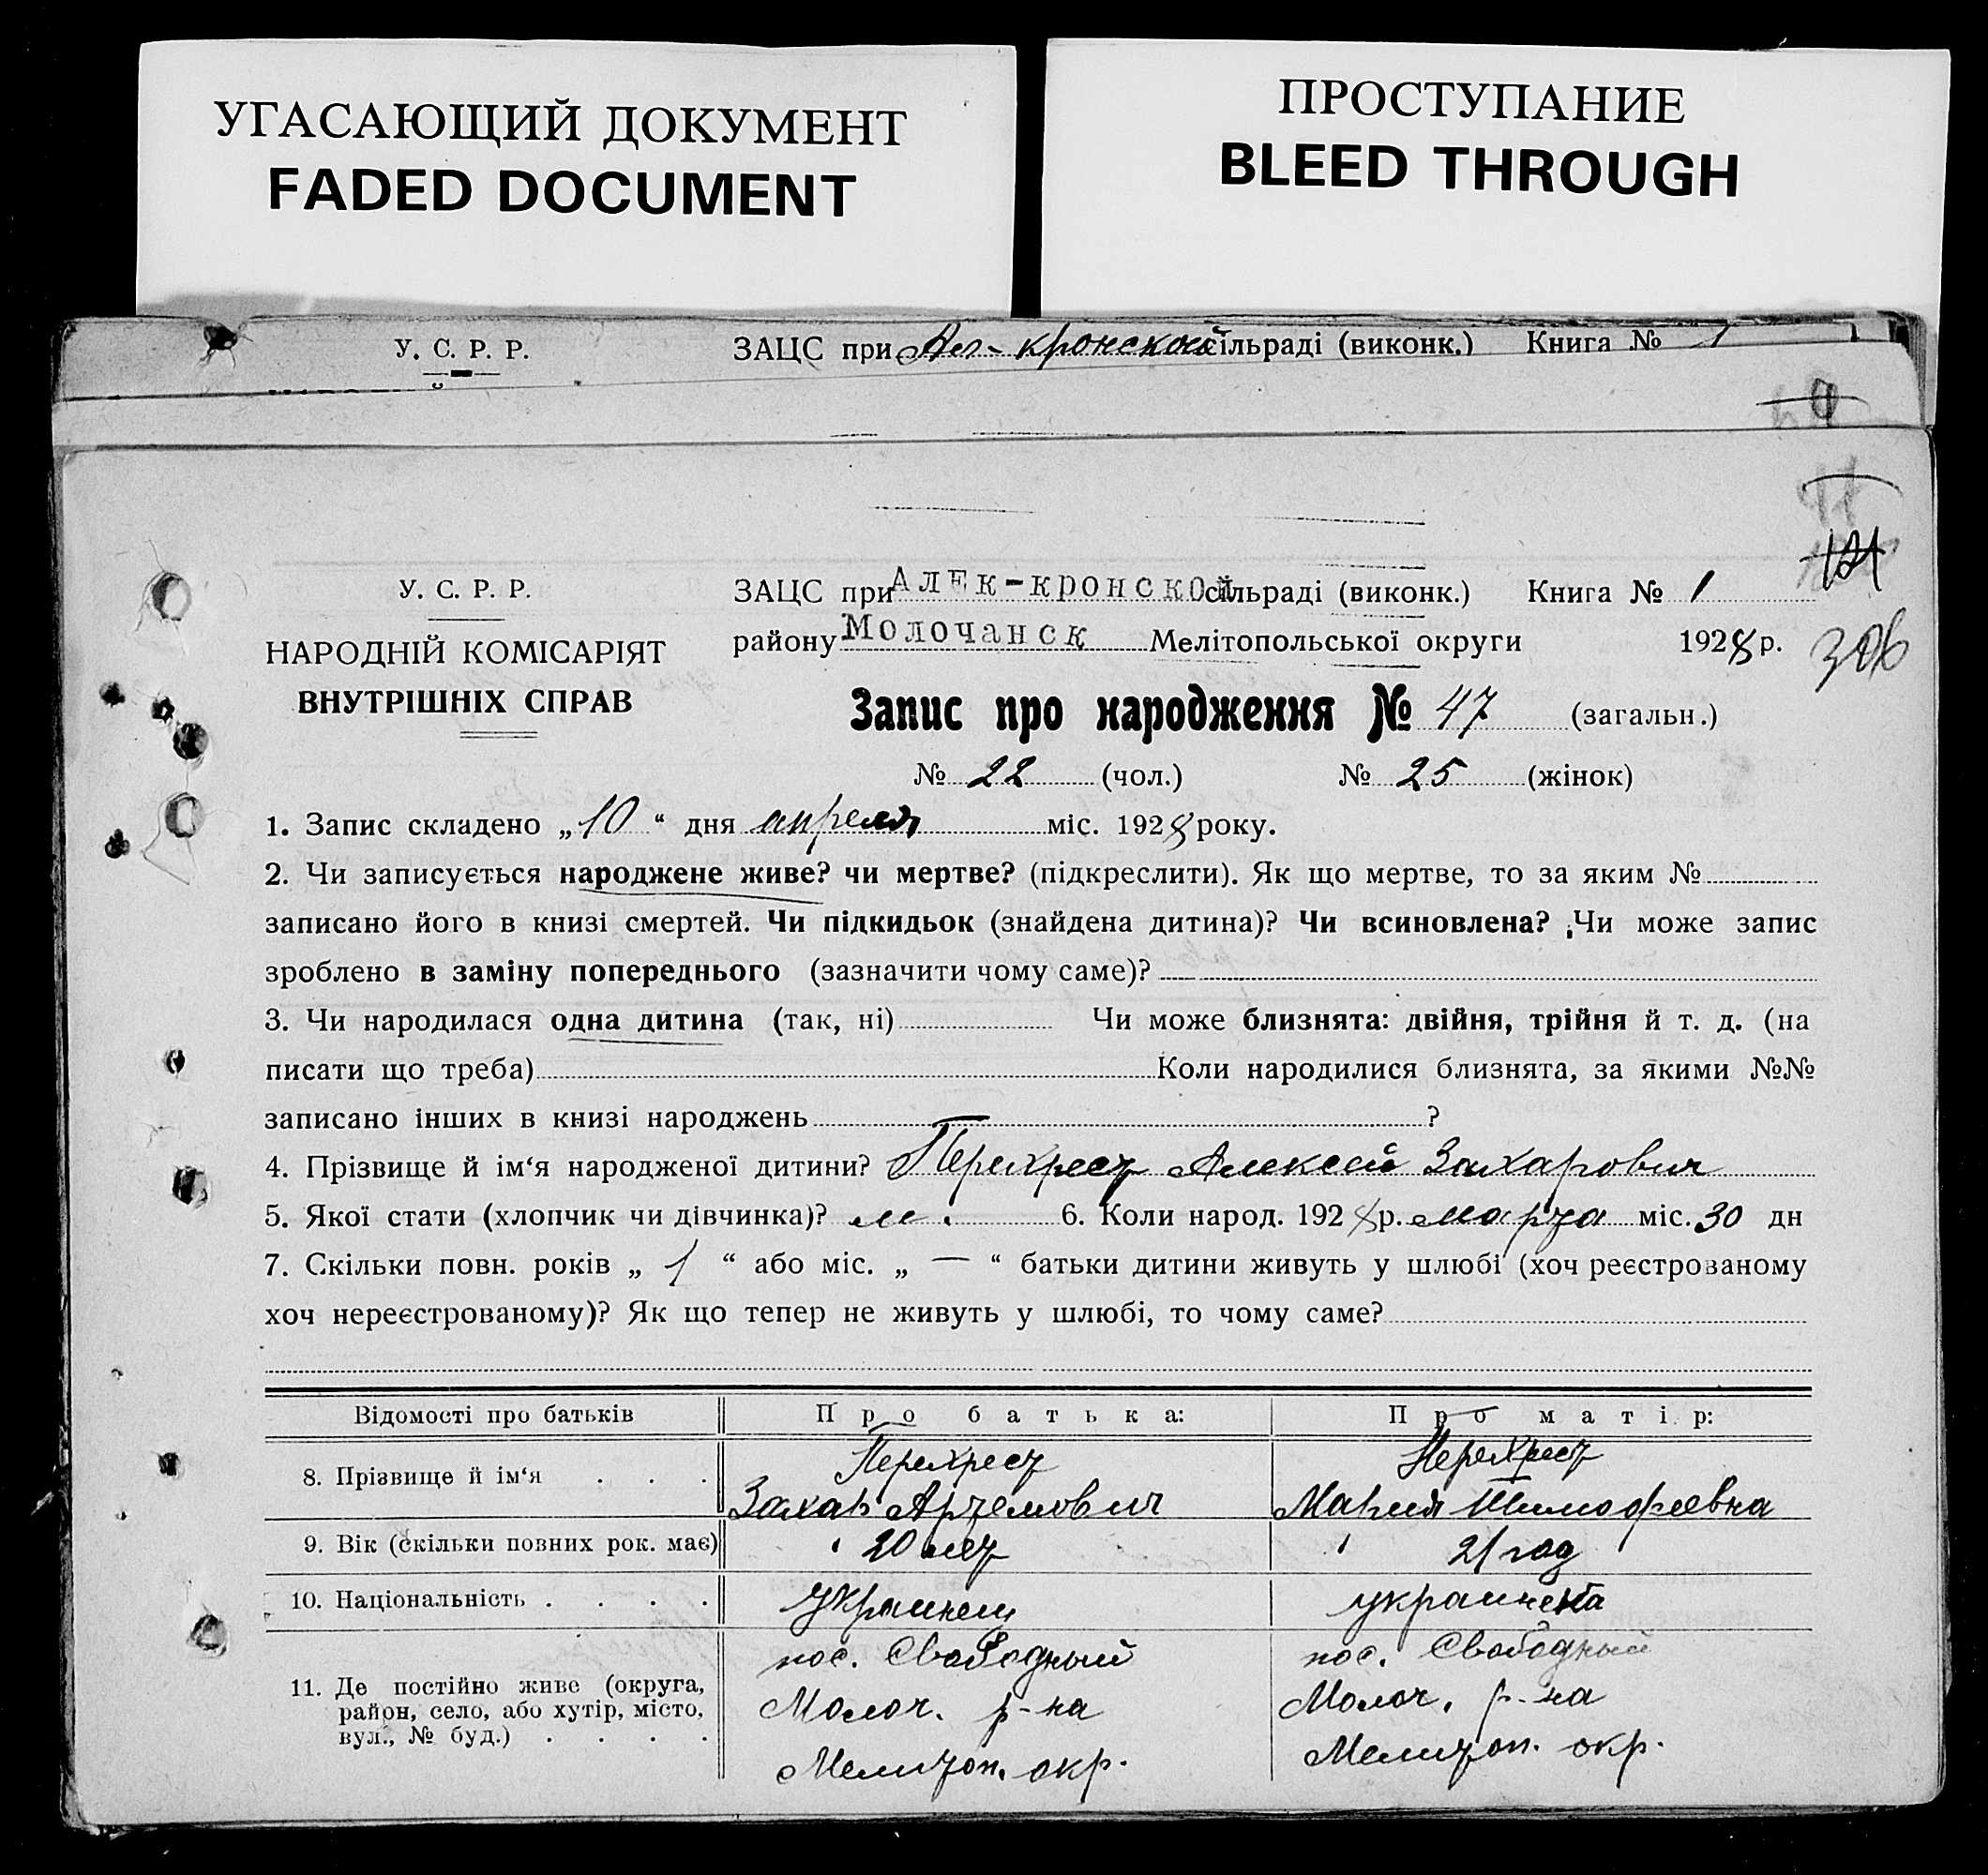 УГАСАЮЩИЙ ДОКУМЕНТ
FADED DOCUMENT
ПРОСТУПАНИЕ
BLEED THROUGH
У. С. Р. Р.
ЗАЦС при Ал-кронской сільраді (виконк.) Книга № 1
У. С. Р. Р.
НАРОДНІЙ КОМІСАРІЯТ
ВНУТРІШНІХ СПРАВ
ЗАЦС при Алек-кронской сільраді (виконк.) Книга № 1
району Молочанск Мелітопольської округи 1928 р.
306
Запис про народження № 47 (загальн.)
№ 22 (чол.) № 25 (жінок)
1. Запис складено „10“ дня апреля міс. 1928 року.
2. Чи записується народжене живе? чи мертве? (підкреслити). Як що мертве, то за яким №
записано його в книзі смертей. Чи підкидьок (знайдена дитина)? Чи всиновлена? Чи може запис
зроблено в заміну попереднього (зазначити чому саме)?
3. Чи народилася одна дитина (так, ні) Чи може близнята: двійня, трійня й т. д. (на
писати що треба) Коли народилися близнята, за якими №№
записано інших в книзі народжень ?
4. Прізвище й ім‘я народженої дитини? Перехрест Алексей Захарович
5. Якої стати (хлопчик чи дівчинка)? м. 6. Коли народ. 1928 р. марта міс. 30 дн
7. Скільки повн. років „ 1 “ або міс. „ — “ батьки дитини живуть у шлюбі (хоч реєстрованому
хоч нереєстрованому)? Як що тепер не живуть у шлюбі, то чому саме?
Відомості про батьків Про батька: Про матір:
8. Прізвище й ім‘я . . . Перехрест Захар Артемович Перехрест Мария Тимофеевна
9. Вік (скільки повних рок. має) 20 лет 21 год
10. Національність . . . . украинец украинка
11. Де постійно живе (округа, район, село, або хутір, місто, вул., № буд.) . . . .
пос. Свободный
Молоч. р-на
Мелитоп. окр.
пос. Свободный
Молоч. р-на
Мелитоп. окр.